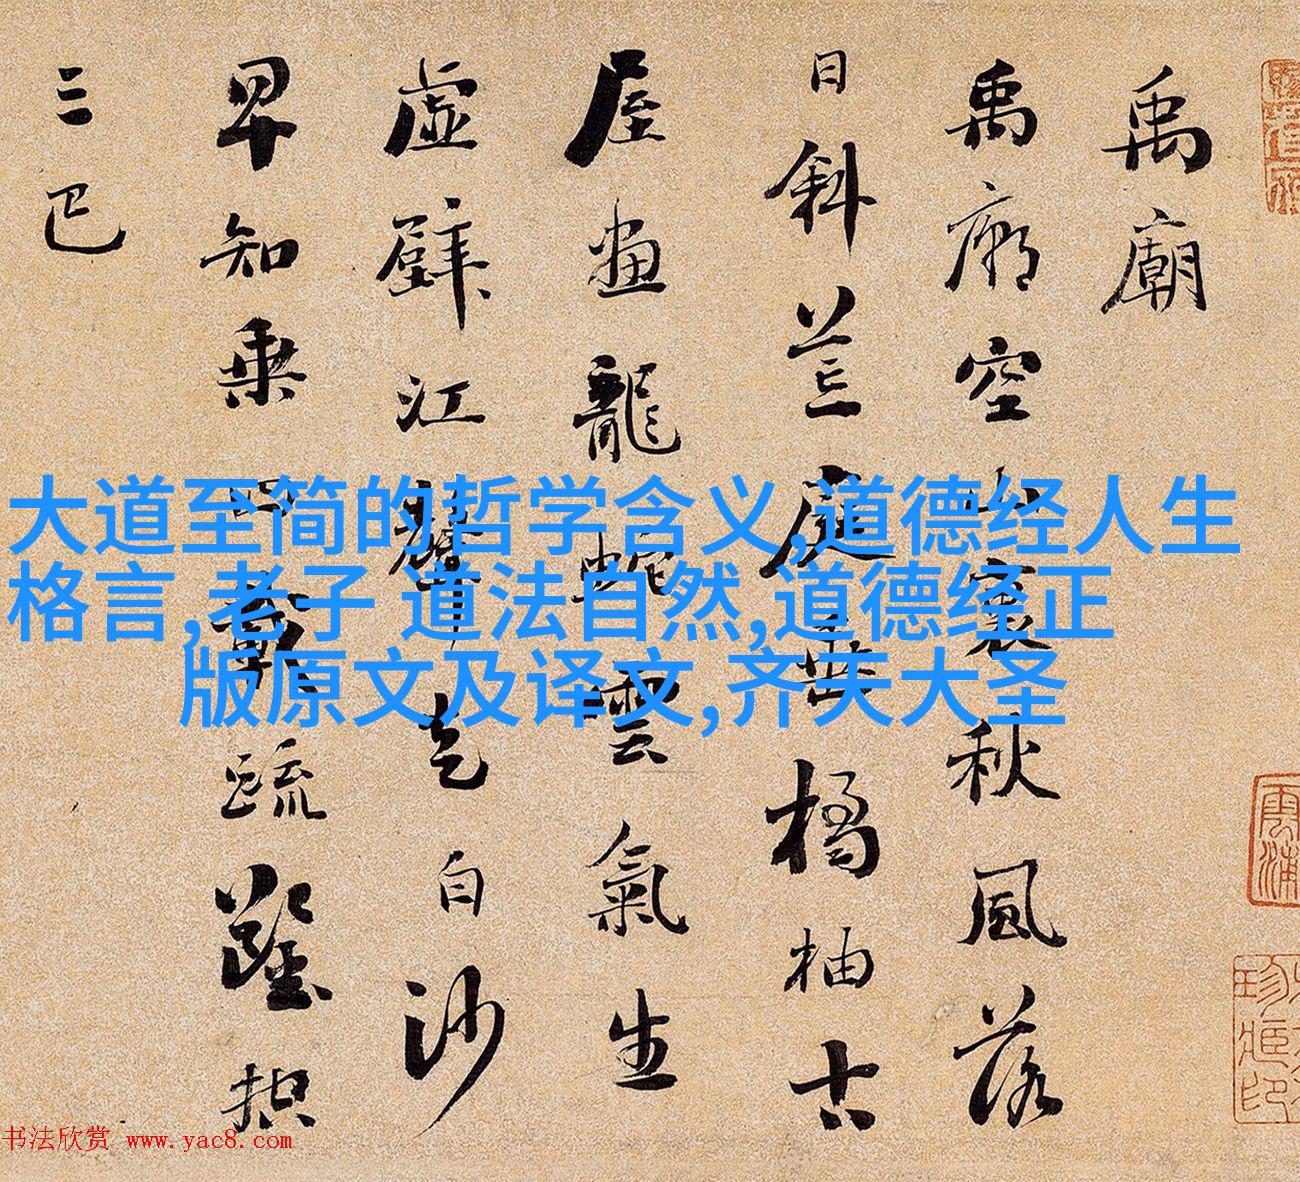 禹廟
禹廟空山裏秋風落
日斜荒庭垂橘柚古
屋畫龍蛇雲氣生
虛壁江聲走白沙
早知乘四載疏鑿控
三巴
大道至简的哲学含义,道德经人生
格言,老子 道法自然,道德经正
版原文及译文,齐天大圣
书法欣赏 www.yac8.com